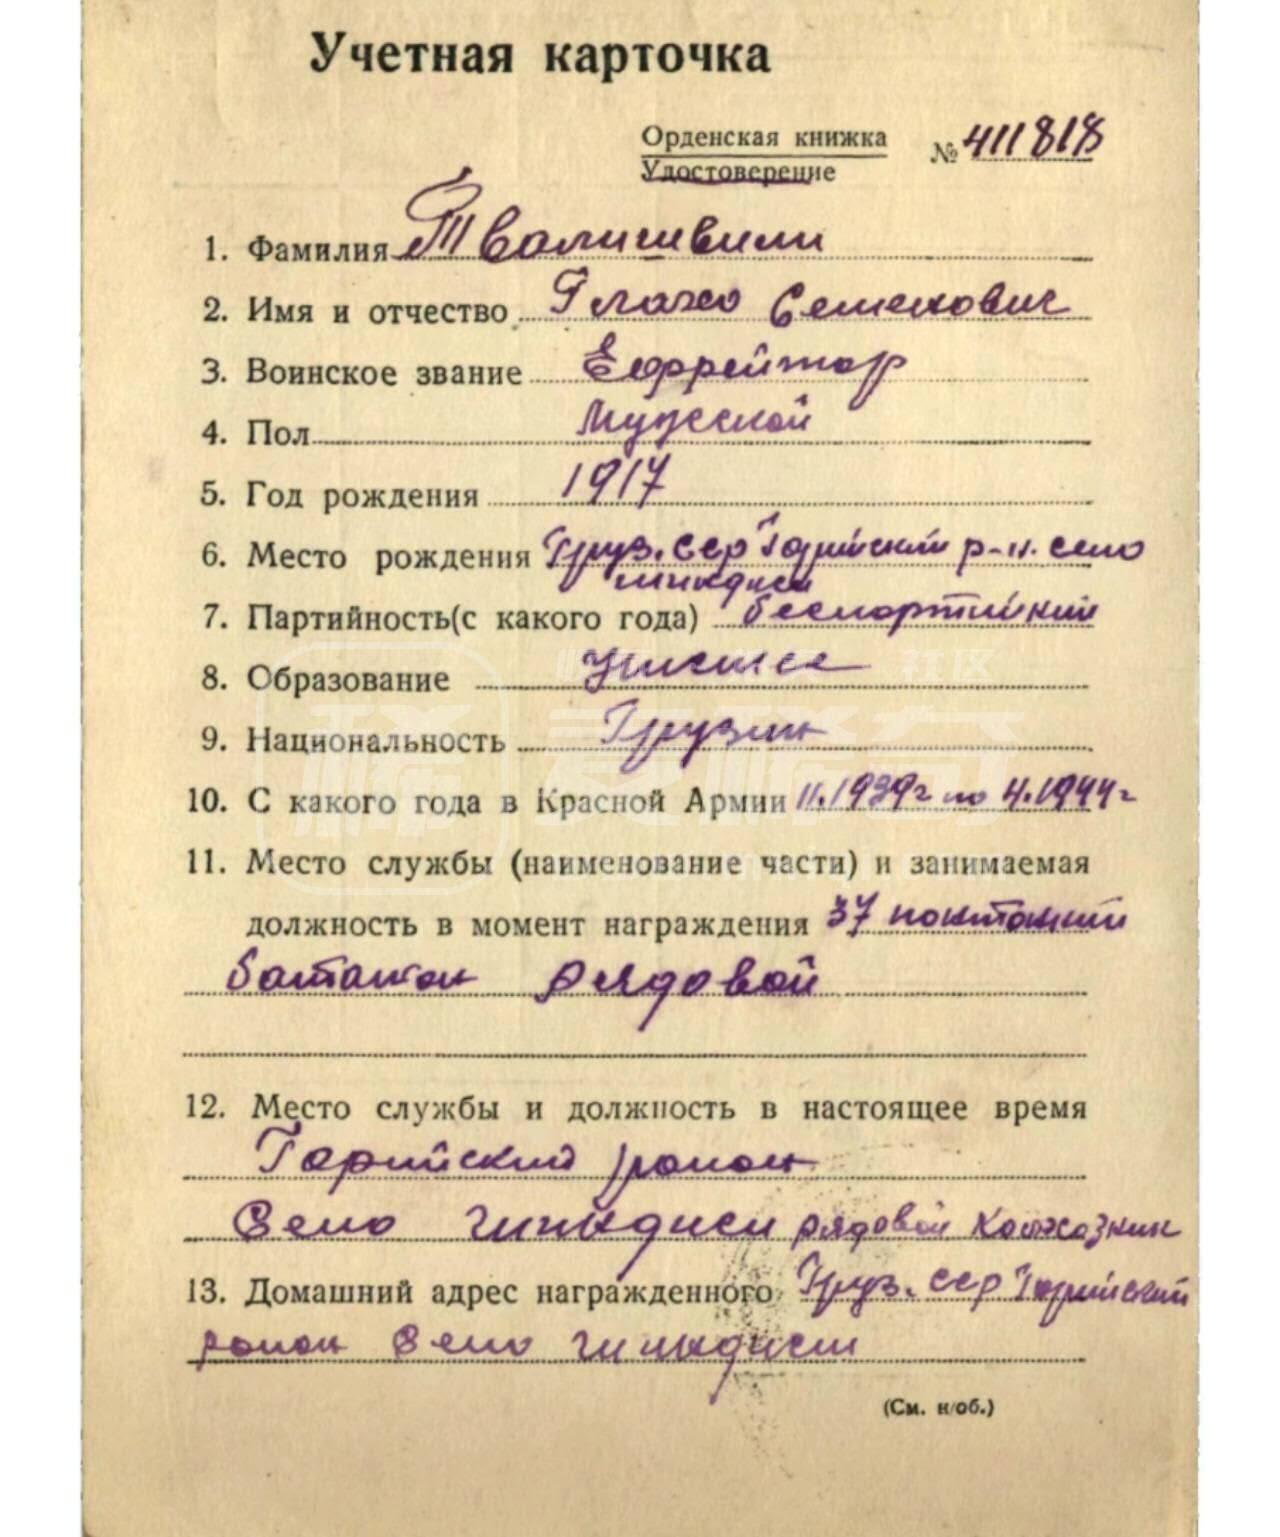 Учетная карточка
Орденская книжка № 411818
Удостоверение
1. Фамилия Твалишвили
2. Имя и отчество Глахо Семенович
3. Воинское звание Ефрейтор
4. Пол Мужской
5. Год рождения 1917
6. Место рождения Груз. ССР Горийский р-н. село
7. Партийность(с какого года) беспартийный
8. Образование
9. Национальность Грузин
10. С какого года в Красной Армии 11.1939г по 4.1944г
11. Место службы (наименование части) и занимаемая
должность в момент награждения 37
батальон Рядовой
12. Место службы и должность в настоящее время
Горийский район
Село рядовой Колхозник
13. Домашний адрес награжденного Груз. ССР Горийский
район Село
(См. н/об.)